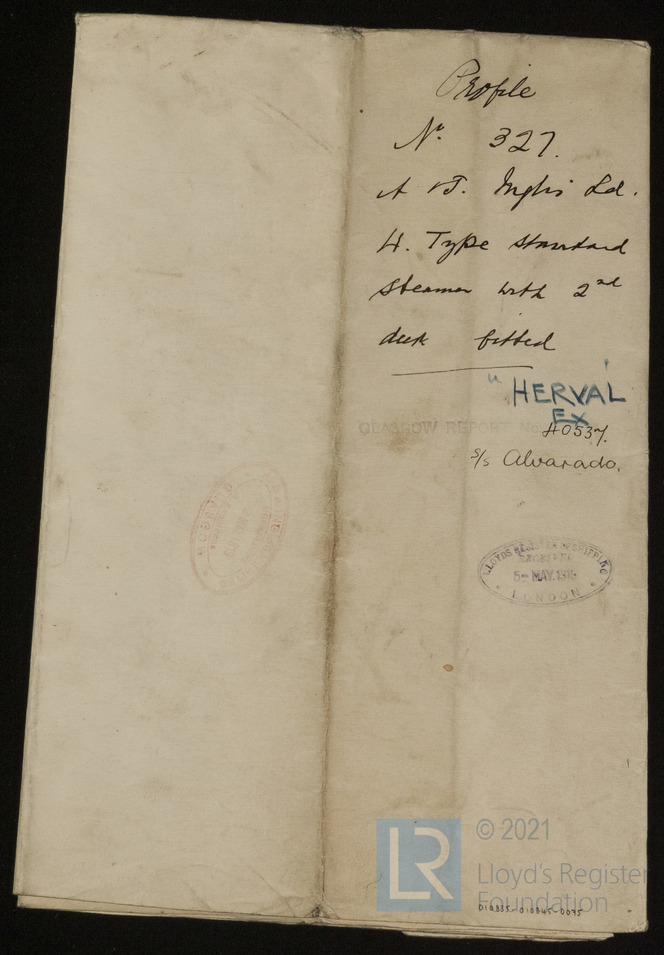 Profile
No. 327.
A & J. Inglis Ld.
H. Type standard
steamer with 2nd
deck fitted
"HERVAL"
EX
GLASGOW REPORT No.
40537.
s/s Alvarado.
LLOYDS REGISTER OF SHIPPING
RECEIVED
5 - MAY. 1919
LONDON
LR
© 2021
Lloyd's Register
Foundation
010835-010845-0075